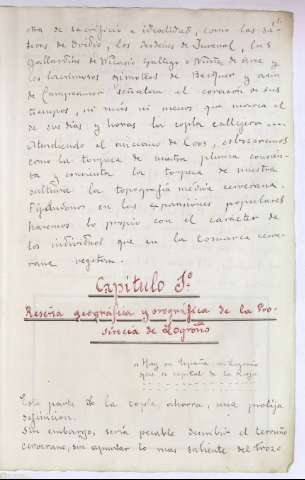 obra de sacrificio e idealidad, como las sá-
tiras de Ovidio, los desdenes de Juvenal, las
gallardías de Nicasio Gallego o Núñez de Arce y
los lacrimosos de Becquer y aún
de Campoamor señalan el corazón de sus
tiempos, ni más ni menos que marca el
de sus días y horas la copla callejera....
Atendiendo al anciano de Coos, esbozaremos
como la torpeza de nuestra pluma consien-
ta y consienta la torpeza de nuestra
cultura la topografía media cerverana.
Fijándonos en las expansiones populares
haremos lo propio con el carácter de
los individuos que en la comarca cerve-
rana vegetan.
Capítulo 1º
Reseña geográfica y orográfica de la Pro-
vincia de Logroño
Hay en España un Logroño
que es capital de la Rioja
Esta parte de la copla, ahorra, una prolija
definición.
Sin embargo, sería pecable describir el terruño
cerverano, sin apuntar lo mas saliente del trozo